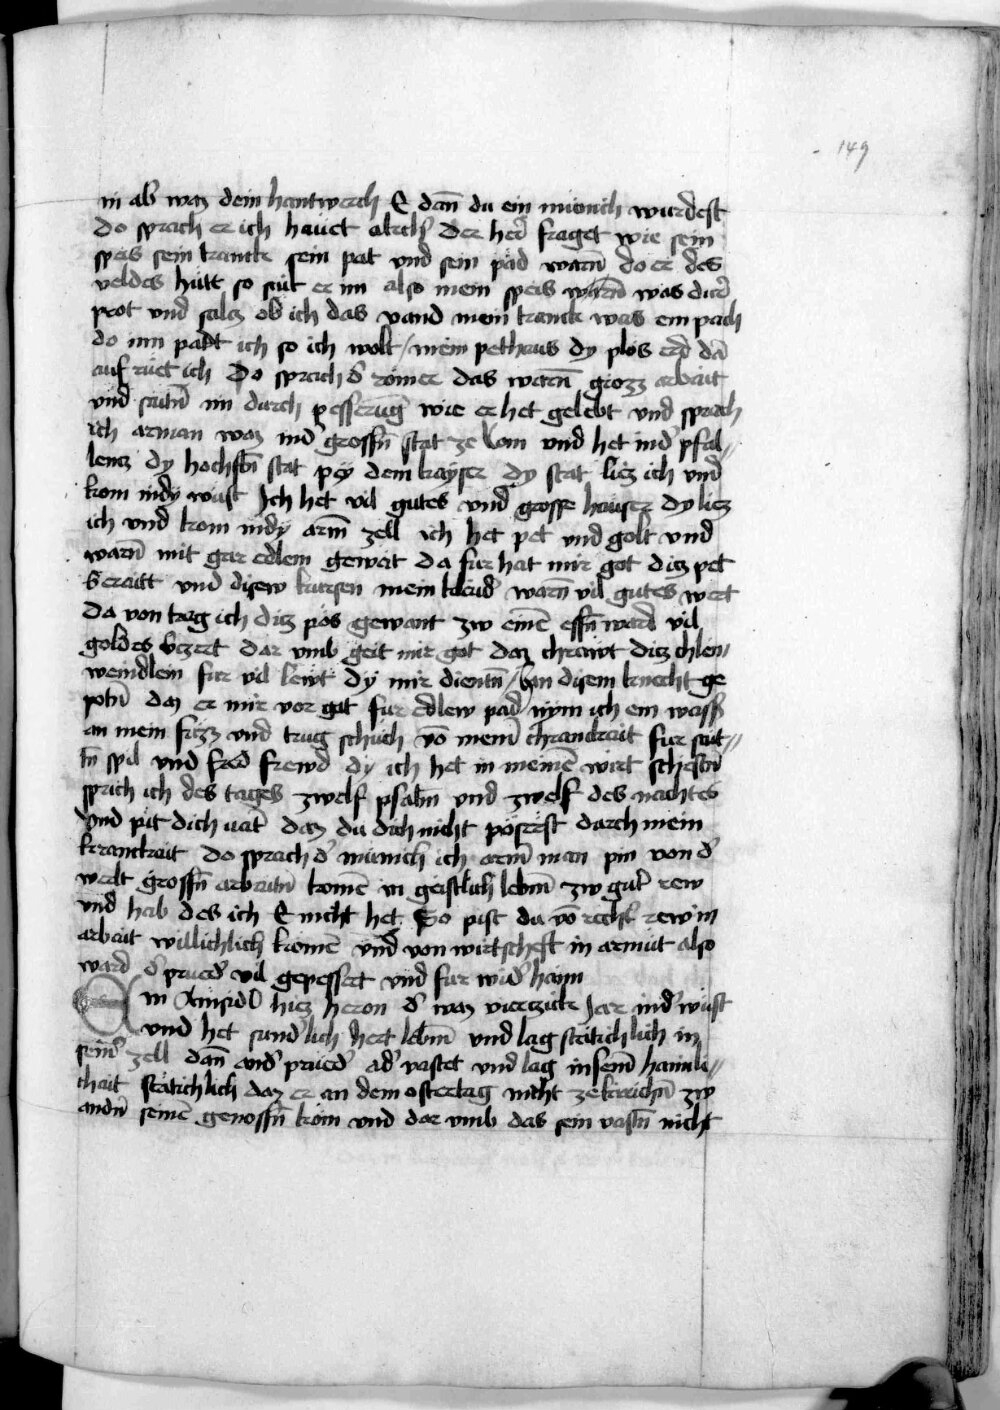 149
in ab waz dein hantwerch E dan̄ du ein münich wurdest
do sprach er ich hauet der her fraget wie sein
speis sein tranck sein pat vnd sein pad warn̄ do er des
veldes hütt so sait er im also mein speis was
prot vnd salcz ob ich das vand mein tranck was ein pach
do inn padt ich so ich wolt / mein pethaus dy plos erd dā
auf ruet ich Do sprach d' römer das warn̄ grozz arbait
vnd sagt im durch pesserūg wie er het gelebt vnd sprach
ich arman waz in d' grossn̄ stat ze Rom vnd het in d' pfal-
lencz dy hochstn̄ stat pey dem kayser dy stat liez ich vnd
kom in dy wüst Ich het vil gutes vnd grosse häuser dy liez
ich vnd kom in dy arm̄ zell ich het pet vnd golt vnd
warn̄ mit gar edlem gewat da fur hat mir got dicz pet
berait vnd disew kursen mein klaid' warn̄ vil gutes wert
da von trag ich dicz pös gewant zw einē essn̄ ward vil
goldes v'czert dar vmb geit mir got daz chrawt dicz chlen
weindlein fur vil lewt dy mir dientn̄ / han disem knecht ge
potn̄ daz er mir vor gat fur edlew pad / nym ich ein wass'
an mein füzz vnd trag schuch vō meinr̄ chranckait fur sait-
tn̄ spil vnd frewd dy ich het in meinē wirtscheftn̄
sprich ich des tages zwelf psalm̄ vnd zwelf des nachtes
vnd pit dich vat' daz du dich nicht pöserst durch mein
kranckait do sprach d' münich ich arm̄ man pin von d'
werlt grossn̄ arbaitn̄ komē in geistlich lebm̄ zw gut' rew
vnd hab des ich E nicht het So pist du vō recht' rew in
arbait willichlich komē vnd von wirtscheft in armüt also
ward d' prued' vil gepessert vnd fur wid' haim
in Ainsidl hiez heron d' waz vierczick Jar in d' wüst
vnd het sund'lich hert lebm̄ vnd lag stätichlich in
sein' zell dan̄ and' prued' ad' vastet vnd lag in seinr̄ haimli-
chait stätichlich daz er an dem ostertag nicht ze kirichn̄ zw
andn̄ seinē genossn̄ kom vnd dar vmb das sein vastn̄ nicht